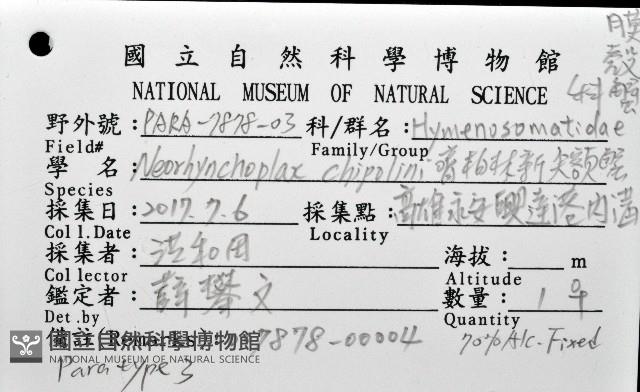 國立自然科學博物館
NATIONAL MUSEUM OF NATURAL SCIENCE
膜殼蟹科
野外號：PARA-7878-03 科/群名：Hymenosomatidae
Field# Family/Group
學名：Neorhynchoplax chipolini 齊柏林新尖額蟹
Species
採集日：2017.7.6 採集點：高雄永安興達港內海
Coll.Date Locality
採集者：洪和田 海拔：m
Collector Altitude
鑑定者：薛攀文 數量：1♀
Det.by Quantity
備註(Remarks): 7878-00004 70%Alc-Fixed
國立自然科學博物館
NATIONAL MUSEUM OF NATURAL SCIENCE
Paratype 3